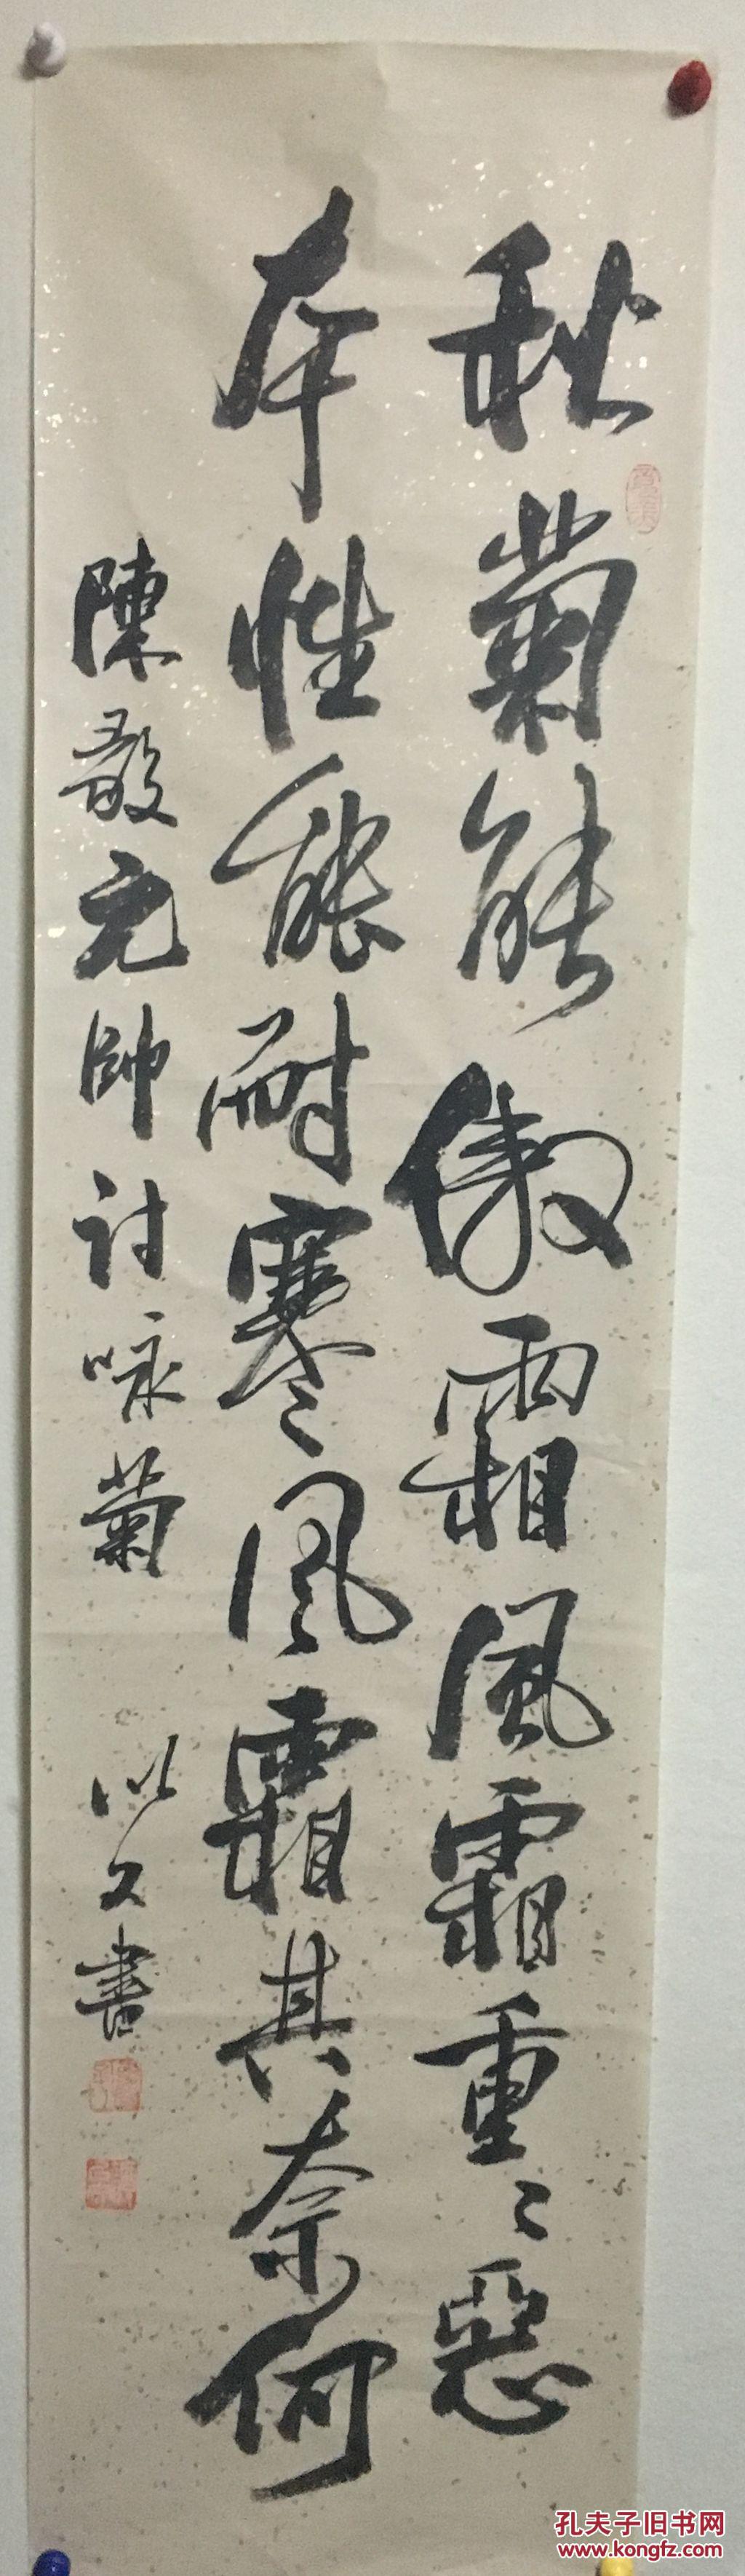 秋菊能傲霜風霜重〻惡
本性能耐寒风霜其奈何
陳毅元帥诗咏菊
以文書
孔夫子旧书网
www.kongfz.com